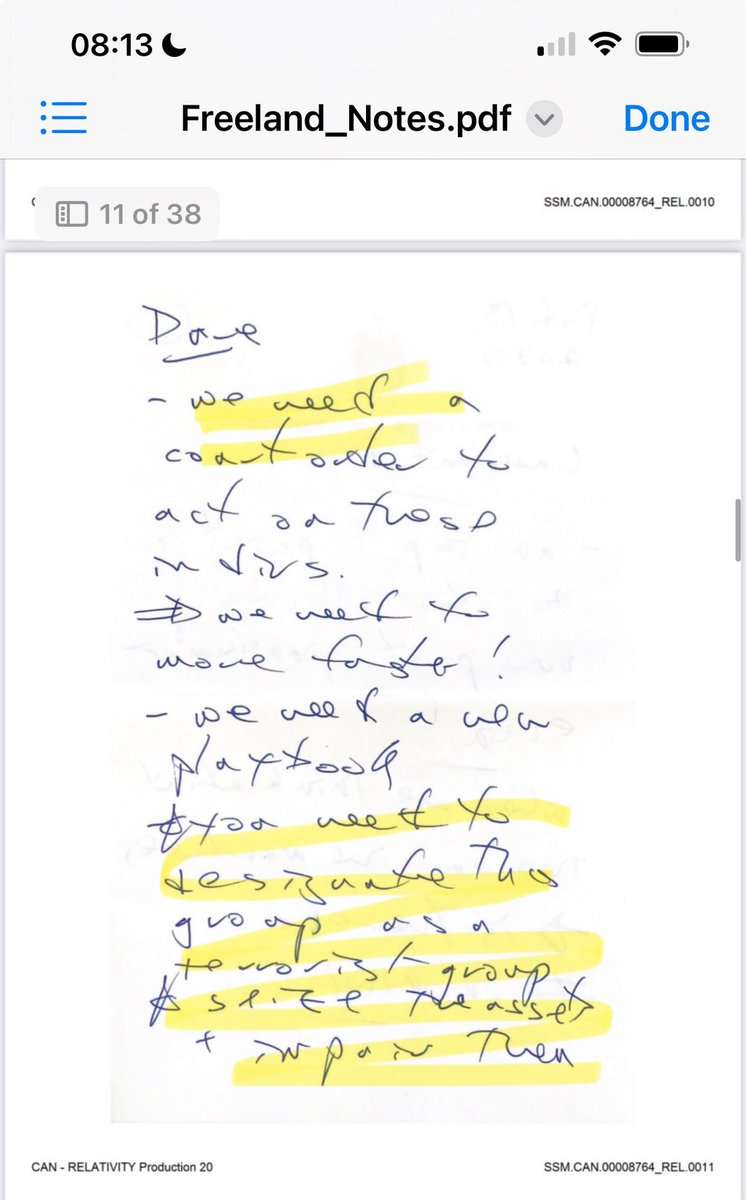 08:13
Freeland_Notes.pdf
Done
11 of 38
SSM.CAN.00008764_REL.0010
Dave
- we need a
court order to
act on those
indivs.
⇒ we need to
move faster!
- we need a new
playbook
* you need to
designate this
group as a
terrorist group
* seize the assets
+ impair them
CAN - RELATIVITY Production 20
SSM.CAN.00008764_REL.0011